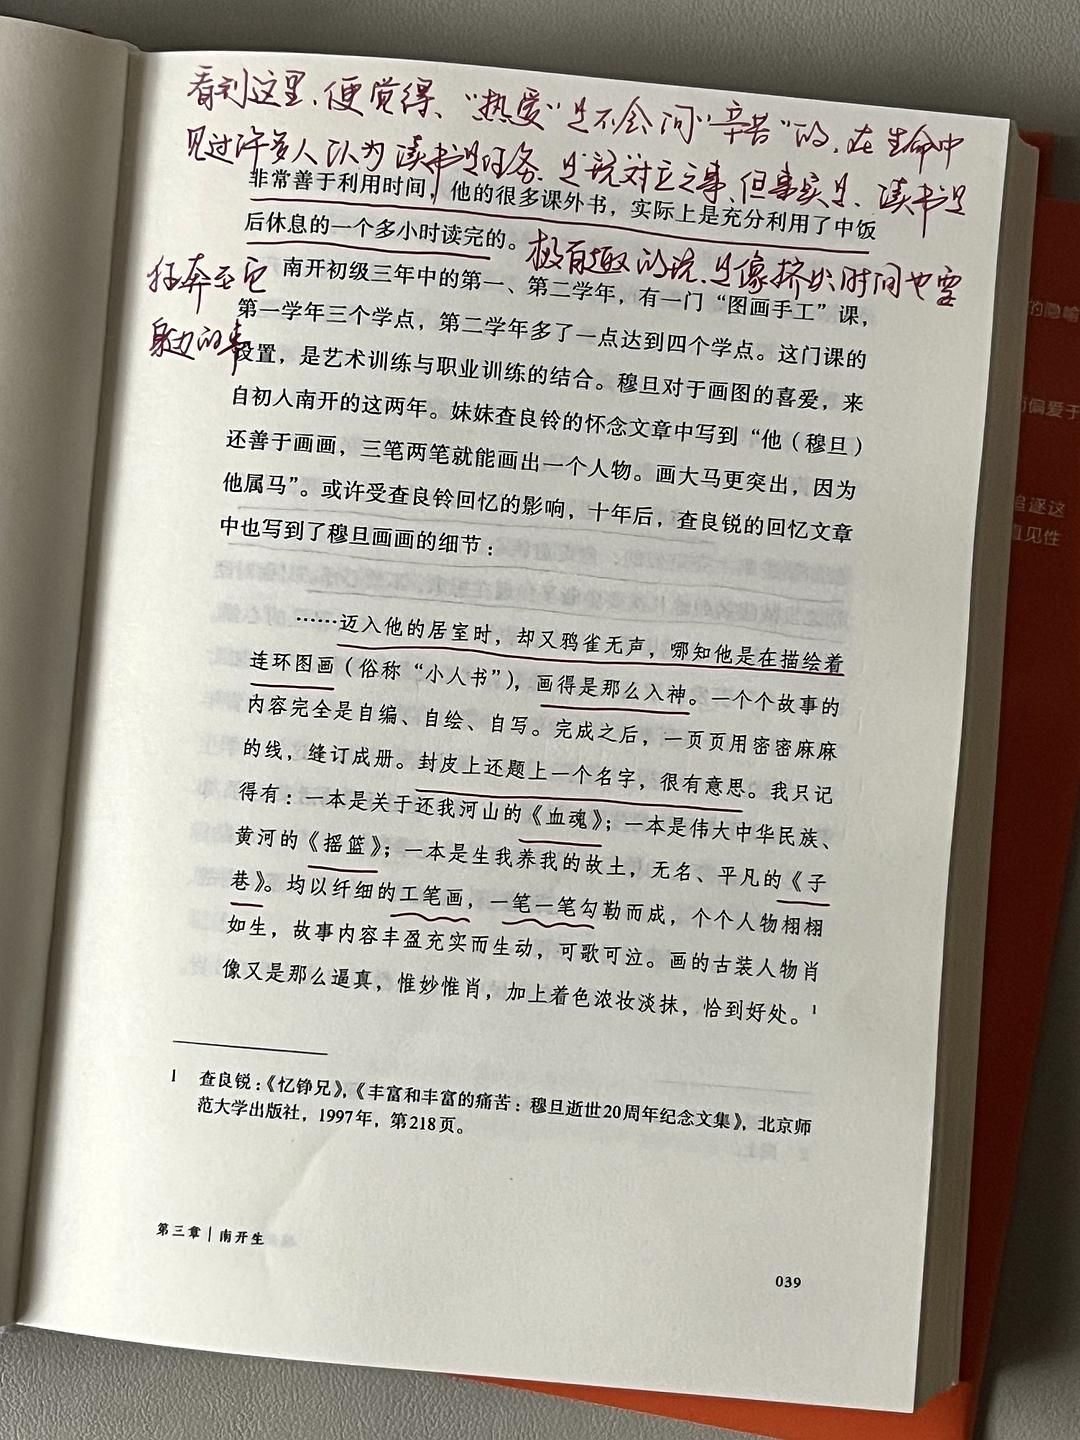 看到这里、便觉得、“热爱”是不会问“辛苦”的，在生命中
见过许多人认为读书是任务、是 对立之事、但事实是、读书是
非常善于利用时间，他的很多课外书，实际上是充分利用了中饭
后休息的一个多小时读完的。
极有趣的 是像挤出时间也要
狂奔至它
身边的事
南开初级三年中的第一、第二学年，有一门“图画手工”课，
第一学年三个学点，第二学年多了一点达到四个学点。这门课的
设置，是艺术训练与职业训练的结合。穆旦对于画图的喜爱，来
自初入南开的这两年。妹妹查良铃的怀念文章中写到“他（穆旦）
还善于画画，三笔两笔就能画出一个人物。画大马更突出，因为
他属马”。或许受查良铃回忆的影响，十年后，查良锐的回忆文章
中也写到了穆旦画画的细节：
……迈入他的居室时，却又鸦雀无声，哪知他是在描绘着
连环图画（俗称“小人书”），画得是那么入神。一个个故事的
内容完全是自编、自绘、自写。完成之后，一页页用密密麻麻
的线，缝订成册。封皮上还题上一个名字，很有意思。我只记
得有：一本是关于还我河山的《血魂》；一本是伟大中华民族、
黄河的《摇篮》；一本是生我养我的故土，无名、平凡的《子
巷》。均以纤细的工笔画，一笔一笔勾勒而成，个个人物栩栩
如生，故事内容丰盈充实而生动，可歌可泣。画的古装人物肖
像又是那么逼真，惟妙惟肖，加上着色浓妆淡抹，恰到好处。1
1 查良锐：《忆铮兄》，《丰富和丰富的痛苦：穆旦逝世20周年纪念文集》，北京师
范大学出版社，1997年，第218页。
第三章｜南开生
039
的隐喻
偏爱于
追逐这
直见性